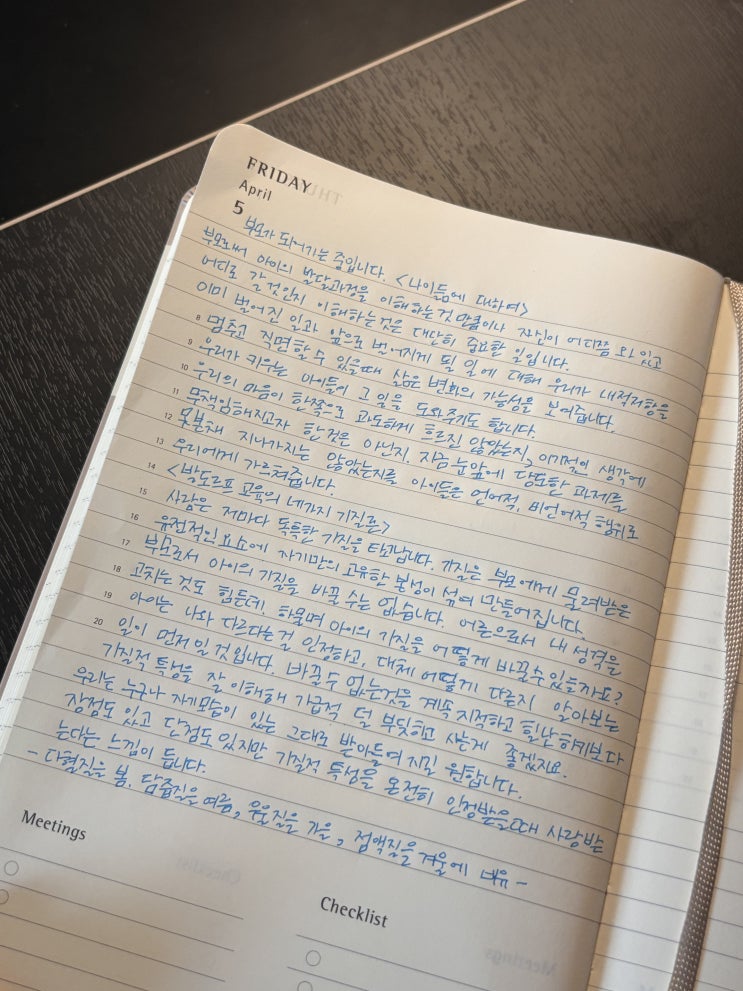 FRIDAY
April
5
부모가 되어가는 중입니다. <나이듦에 대하여>
부모로써 아이의 발달과정을 이해하는것 만큼이나 자신이 어디쯤 와 있고
어디로 갈 것인지 이해하는것은 대단히 중요한 일입니다.
이미 벌어진 일과 앞으로 벌어지게 될 일에 대해 우리가 내적저항을
8 멈추고 직면할 수 있을때 삶은 변화의 가능성을 보여줍니다.
9 우리가 키우는 아이들이 그 일을 도와주기도 합니다.
10 우리의 마음이 한쪽으로 과도하게 흐르진 않았는지, 이기적인 생각에
11 무책임해지고자 한것은 아닌지. 지금 눈앞에 당도한 과제를
12 못본채 지나가지는 않았는지를 아이들은 언어적, 비언어적 행위로
13 우리에게 가르쳐줍니다.
14 <발도르프 교육의 네가지 기질론>
15 사람은 저마다 독특한 기질을 타고납니다. 기질은 부모에게 물려받은
16 유전적인요소에 자기만의 고유한 본성이 섞여 만들어집니다.
17 부모로서 아이의 기질을 바꿀 수는 없습니다. 어른으로서 내 성격을
18 고치는 것도 힘든데 하물며 아이의 기질을 어떻게 바꿀수 있을까요?
19 아이는 나와 다르다는걸 인정하고, 대체 어떻게 다른지 알아보는
20 일이 먼저일 것입니다. 바꿀 수 없는것을 계속 지적하고 힐난하기보다
기질적 특성을 잘 이해해 가급적 덜 부딪히고 사는게 좋겠지요.
우리는 누구나 자기모습이 있는 그대로 받아들여지길 원합니다.
장점도 있고 단점도 있지만 기질적 특성을 온전히 인정받을때 사랑받
는다는 느낌이 듭니다.
- 다혈질을 봄, 담즙질을 여름, 우울질을 가을, 점액질을 겨울에 비유 -
Meetings
Checklist